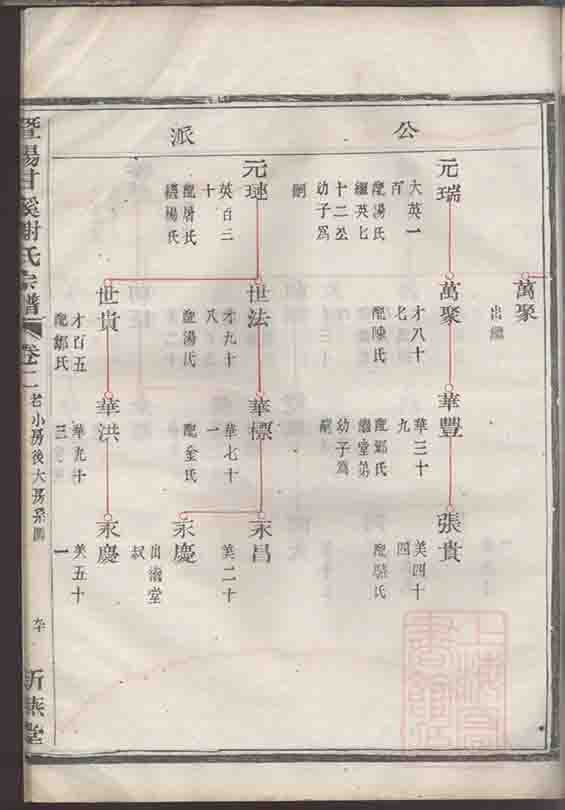 公派
萬聚
出繼
元瑞
大英一
百
配湯氏
繼英七
十二公
幼子為
嗣
萬聚
才八十
七
配陳氏
華豐
華三十
九
配鄭氏
繼堂弟
幼子為
嗣
張貴
美四十
四
元璉
英百三
十
配屠氏
繼楊氏
世法
才九十
八
配湯氏
華標
華七十
一
配金氏
永昌
美二十
永慶
出繼堂
叔
世貴
才百五
配鄭氏
華洪
華九十
三
永慶
美五十
一
暨陽甘溪謝氏宗譜
卷二
老小房後大房系圖